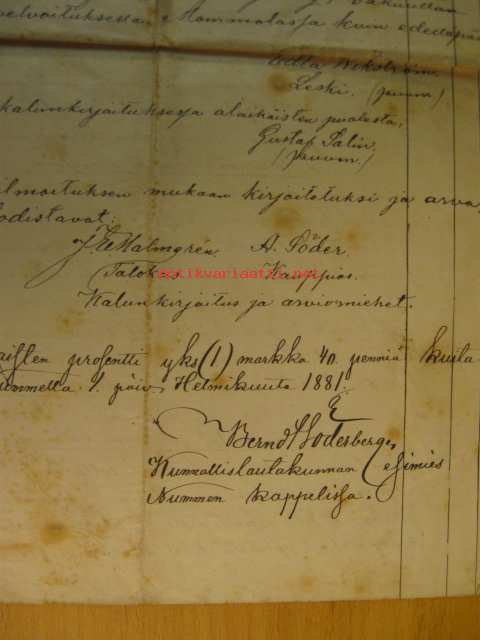 velvoituksellan Mommolassa kuin edellä
Edla Wikström.
Leski. (puumm.)
kalunkirjoituksessa alaikäisten puolesta,
Gustaf Talin.
(puumm.)
ilmoituksen mukaan kirjoitetuksi ja arva
todistavat:
J. E. Malmgrén. A. Söder.
Talok Kauppias.
antikvariaatti.net
Kalunkirjoitus ja arviomiehet.
aisten prosentti yks (1) markka 40 penniä kuita
1. päiv. Helmikuuta 1881.
Bernd Söderberg,
Kunnallislautakunnan esimies
Nummen kappelissa.